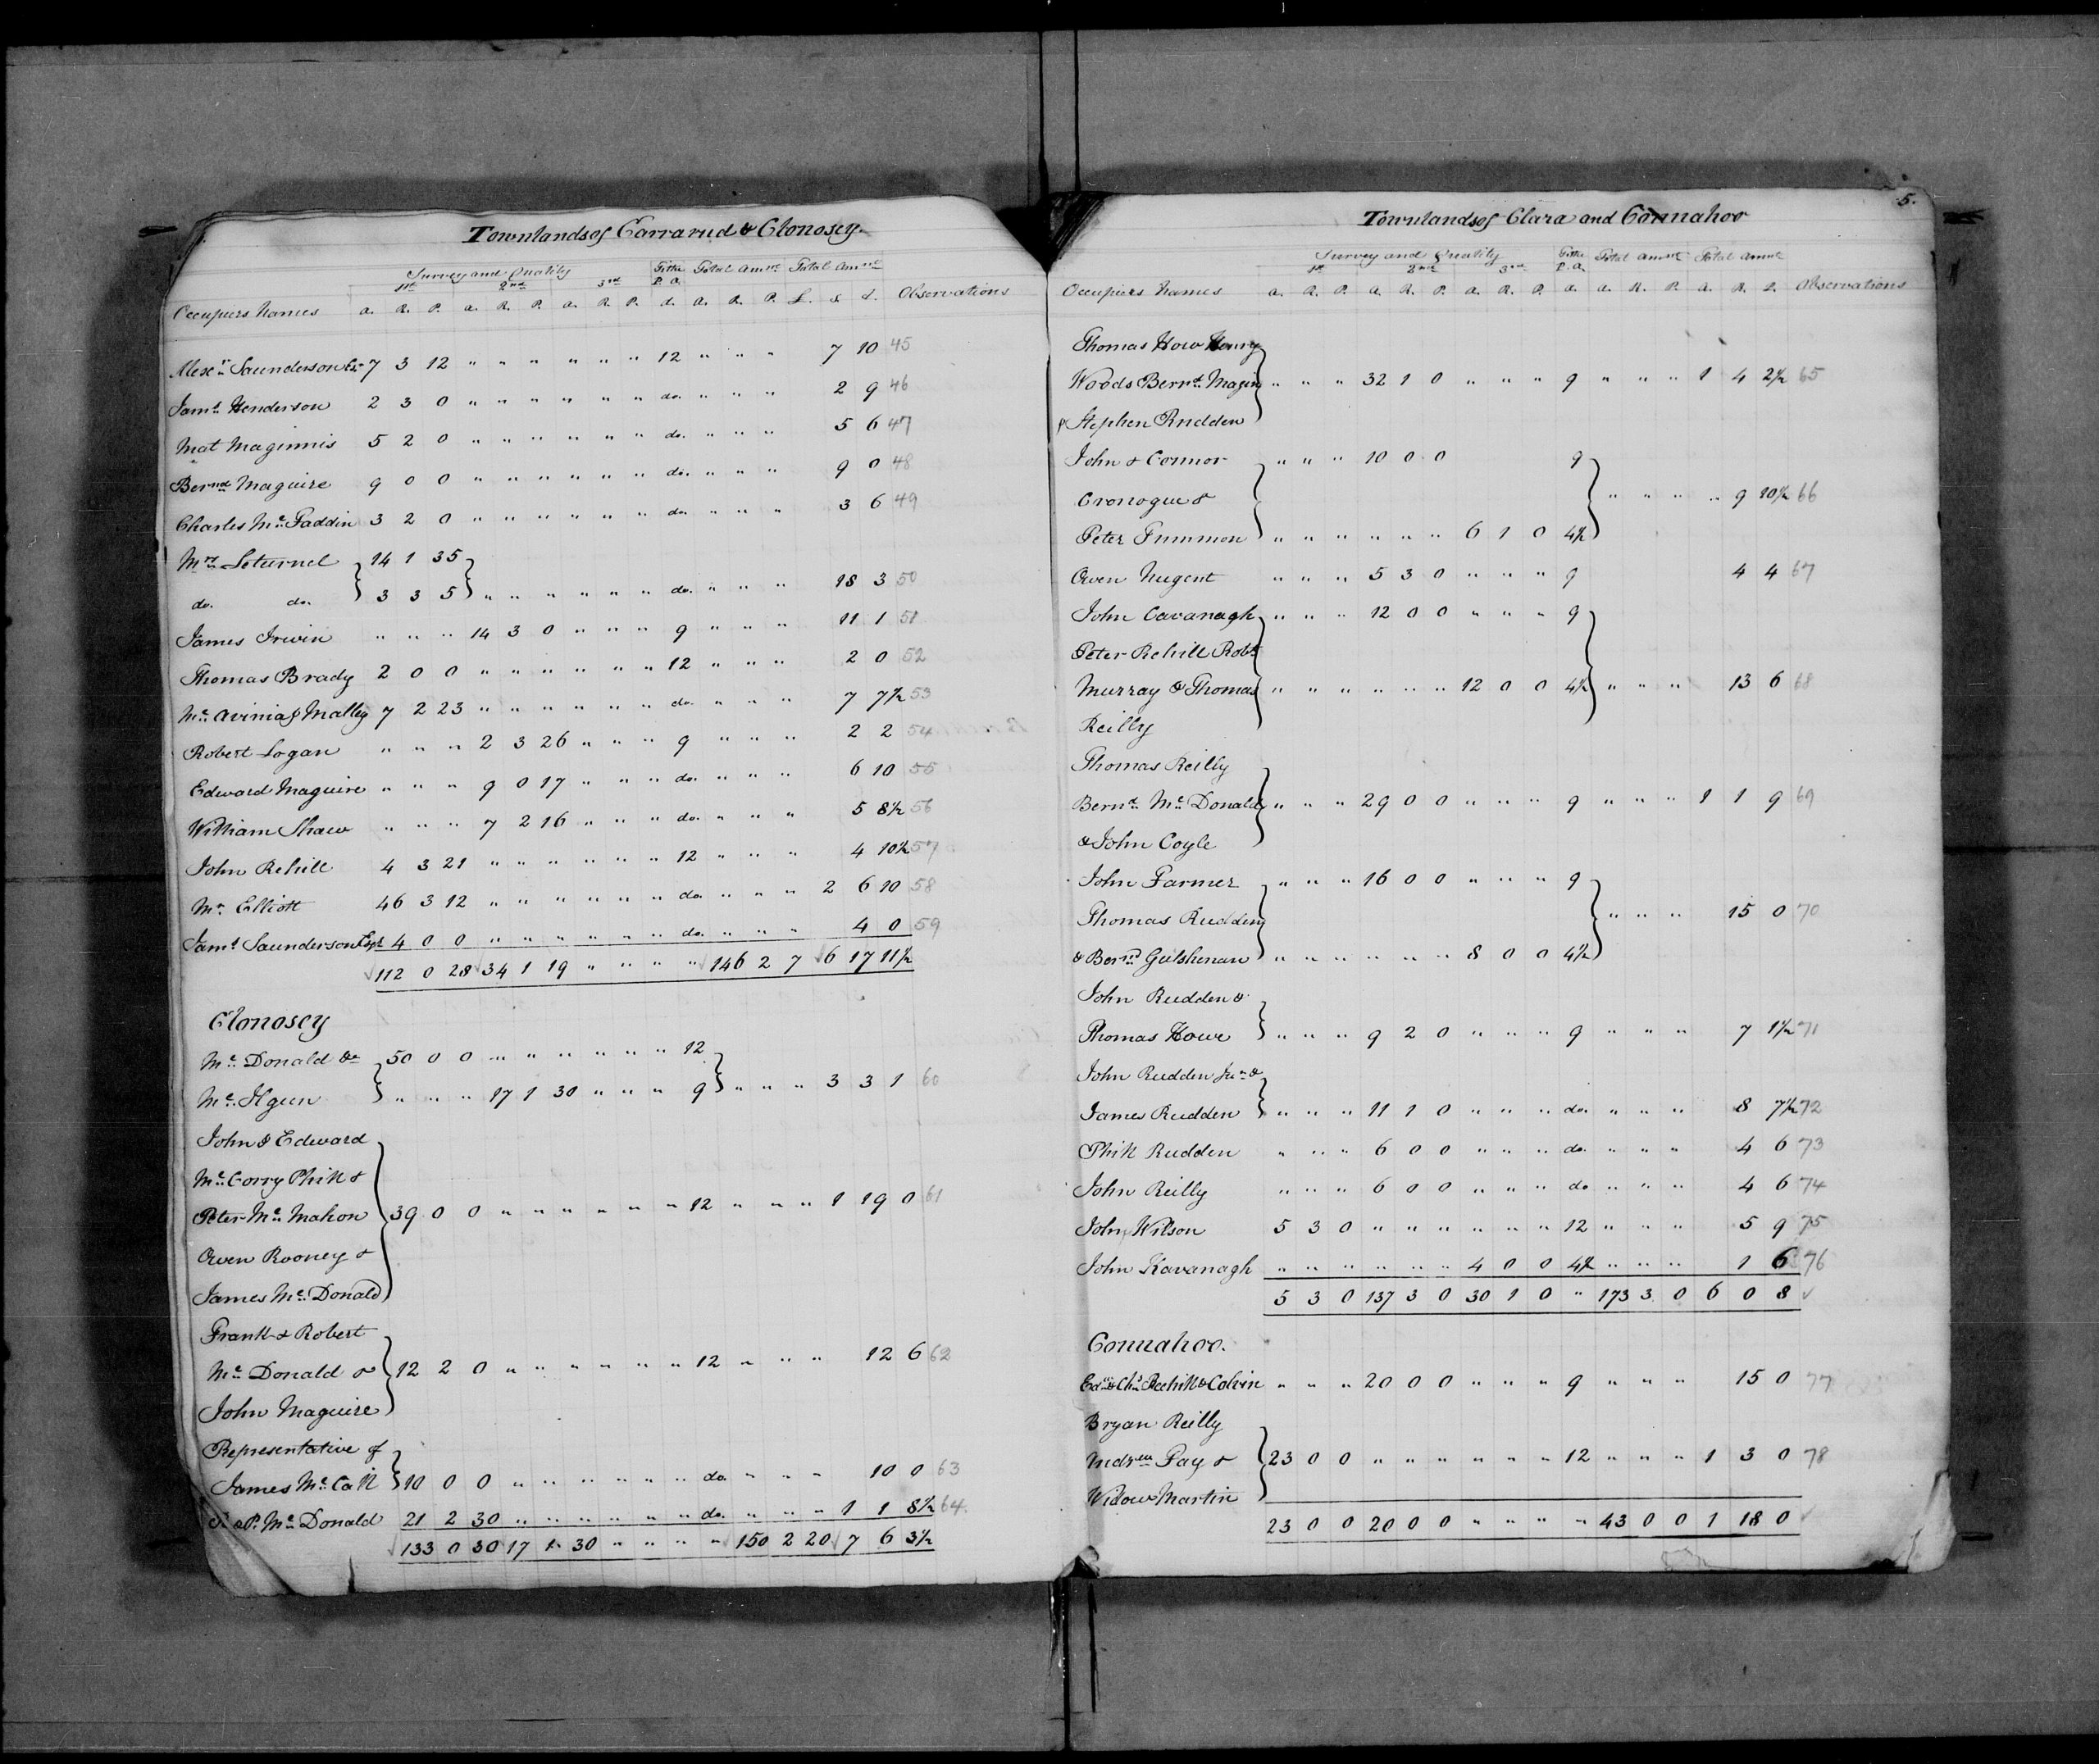 Townlands of Carrarud & Clonosey.
Survey and Quality Tithe P. A. Total Amnt Total Amnt
1st 2nd 3rd
Occupiers Names a. R. P. a. R. P. a. R. P. d. a. R. P. £. s d. Observations
Alexr Saunderson Esr 7 3 12 " " " " " " 12 " " " 7 10 45
Jams Henderson 2 3 0 " " " " " " do. " " " 2 9 46
Mat Maginnis 5 2 0 " " " " " " do. " " " 5 6 47
Bernd Maguire 9 0 0 " " " " " " do. " " " 9 0 48
Charles Mc Faddin 3 2 0 " " " " " " do. " " " 3 6 49
Mrs Leturnel 14 1 35
do. do. 3 3 5 " " " " " " do. " " " 18 3 50
James Irwin " " " 14 3 0 " " " 9 " " " 11 1 51
Thomas Brady 2 0 0 " " " " " " 12 " " " 2 0 52
Mc Avinia & Malley 7 2 23 " " " " " " do. " " " 7 7½ 53
Robert Logan " " " 2 3 26 " " " 9 " " " 2 2 54
Edward Maguire " " " 9 0 17 " " " do. " " " 6 10 55
William Shaw " " " 7 2 16 " " " do. " " " 5 8½ 56
John Rehill 4 3 21 " " " " " " 12 " " " 4 10½ 57
Mr Elliott 46 3 12 " " " " " " do. " " " 2 6 10 58
Jams Saunderson Esqr 4 0 0 " " " " " " do. " " " 4 0 59
112 0 28 34 1 19 " " " " 146 2 7 6 17 11½
Clonosey
Mc Donald & 50 0 0 " " " " " " 12
Mc Ilgun " " " 17 1 30 " " " 9 " " " 3 3 1 60
John & Edward
Mc Corry Phill &
Peter Mc Mahon 39 0 0 " " " " " " 12 " " " 1 19 0 61
Owen Rooney &
James Mc Donald
Frank & Robert
Mc Donald & 12 2 0 " " " " " " 12 " " " 12 6 62
John Maguire
Representative of
James Mc Call 10 0 0 " " " " " " do. " " " 10 0 63
& P. Mc Donald 21 2 30 " " " " " " do. " " " 1 1 8½ 64
133 0 30 17 1 30 " " " " 150 2 20 7 6 3½
5.
Townlands of Clara and Connahoo
Survey and Quality Tithe P. A. Total Amnt Total Amnt
1st 2nd 3rd
Occupiers Names a. R. P. a. R. P. a. R. P. d. a. R. P. a. R. P. Observations
Thomas How Henry
Woods Bernd Magin " " " 32 1 0 " " " 9 " " " 1 4 2½ 65
& Stephen Rudden
John & Connor " " " 10 0 0 9
Cronogue & " " " " 9 10½ 66
Peter Fummon " " " " " " 6 1 0 4½
Owen Nugent " " " 5 3 0 " " " 9 4 4 67
John Cavanagh " " " 12 0 0 " " " 9
Peter Rehill Robt
Murray & Thomas " " " " " " 12 0 0 4½ " " " 13 6 68
Reilly
Thomas Reilly
Bernd Mc Donald " " " 29 0 0 " " " 9 " " " 1 1 9 69
& John Coyle
John Farmer " " " 16 0 0 " " " 9
Thomas Rudden " " " 15 0 70
& Bernd Gilshenan " " " " " " 8 0 0 4½
John Rudden &
Thomas Howe " " " 9 2 0 " " " 9 " " " 7 1½ 71
John Rudden Junr &
James Rudden " " " 11 1 0 " " " do. " " " 8 7½ 72
Phill Rudden " " " 6 0 0 " " " do. " " " 4 6 73
John Reilly " " " 6 0 0 " " " do " " " 4 6 74
John Wilson 5 3 0 " " " " " " 12 " " " 5 9 75
John Kavanagh " " " " " " 4 0 0 4½ " " " 1 6 76
5 3 0 137 3 0 30 1 0 " 173 3 0 6 0 8
Connahoo.
Edwd & Chs Rehill & Colvin " " " 20 0 0 " " " 9 " " " 15 0 77
Bryan Reilly
Andrew Fay & 23 0 0 " " " " " " 12 " " " 1 3 0 78
Widow Martin
23 0 0 20 0 0 " " " " 43 0 0 1 18 0